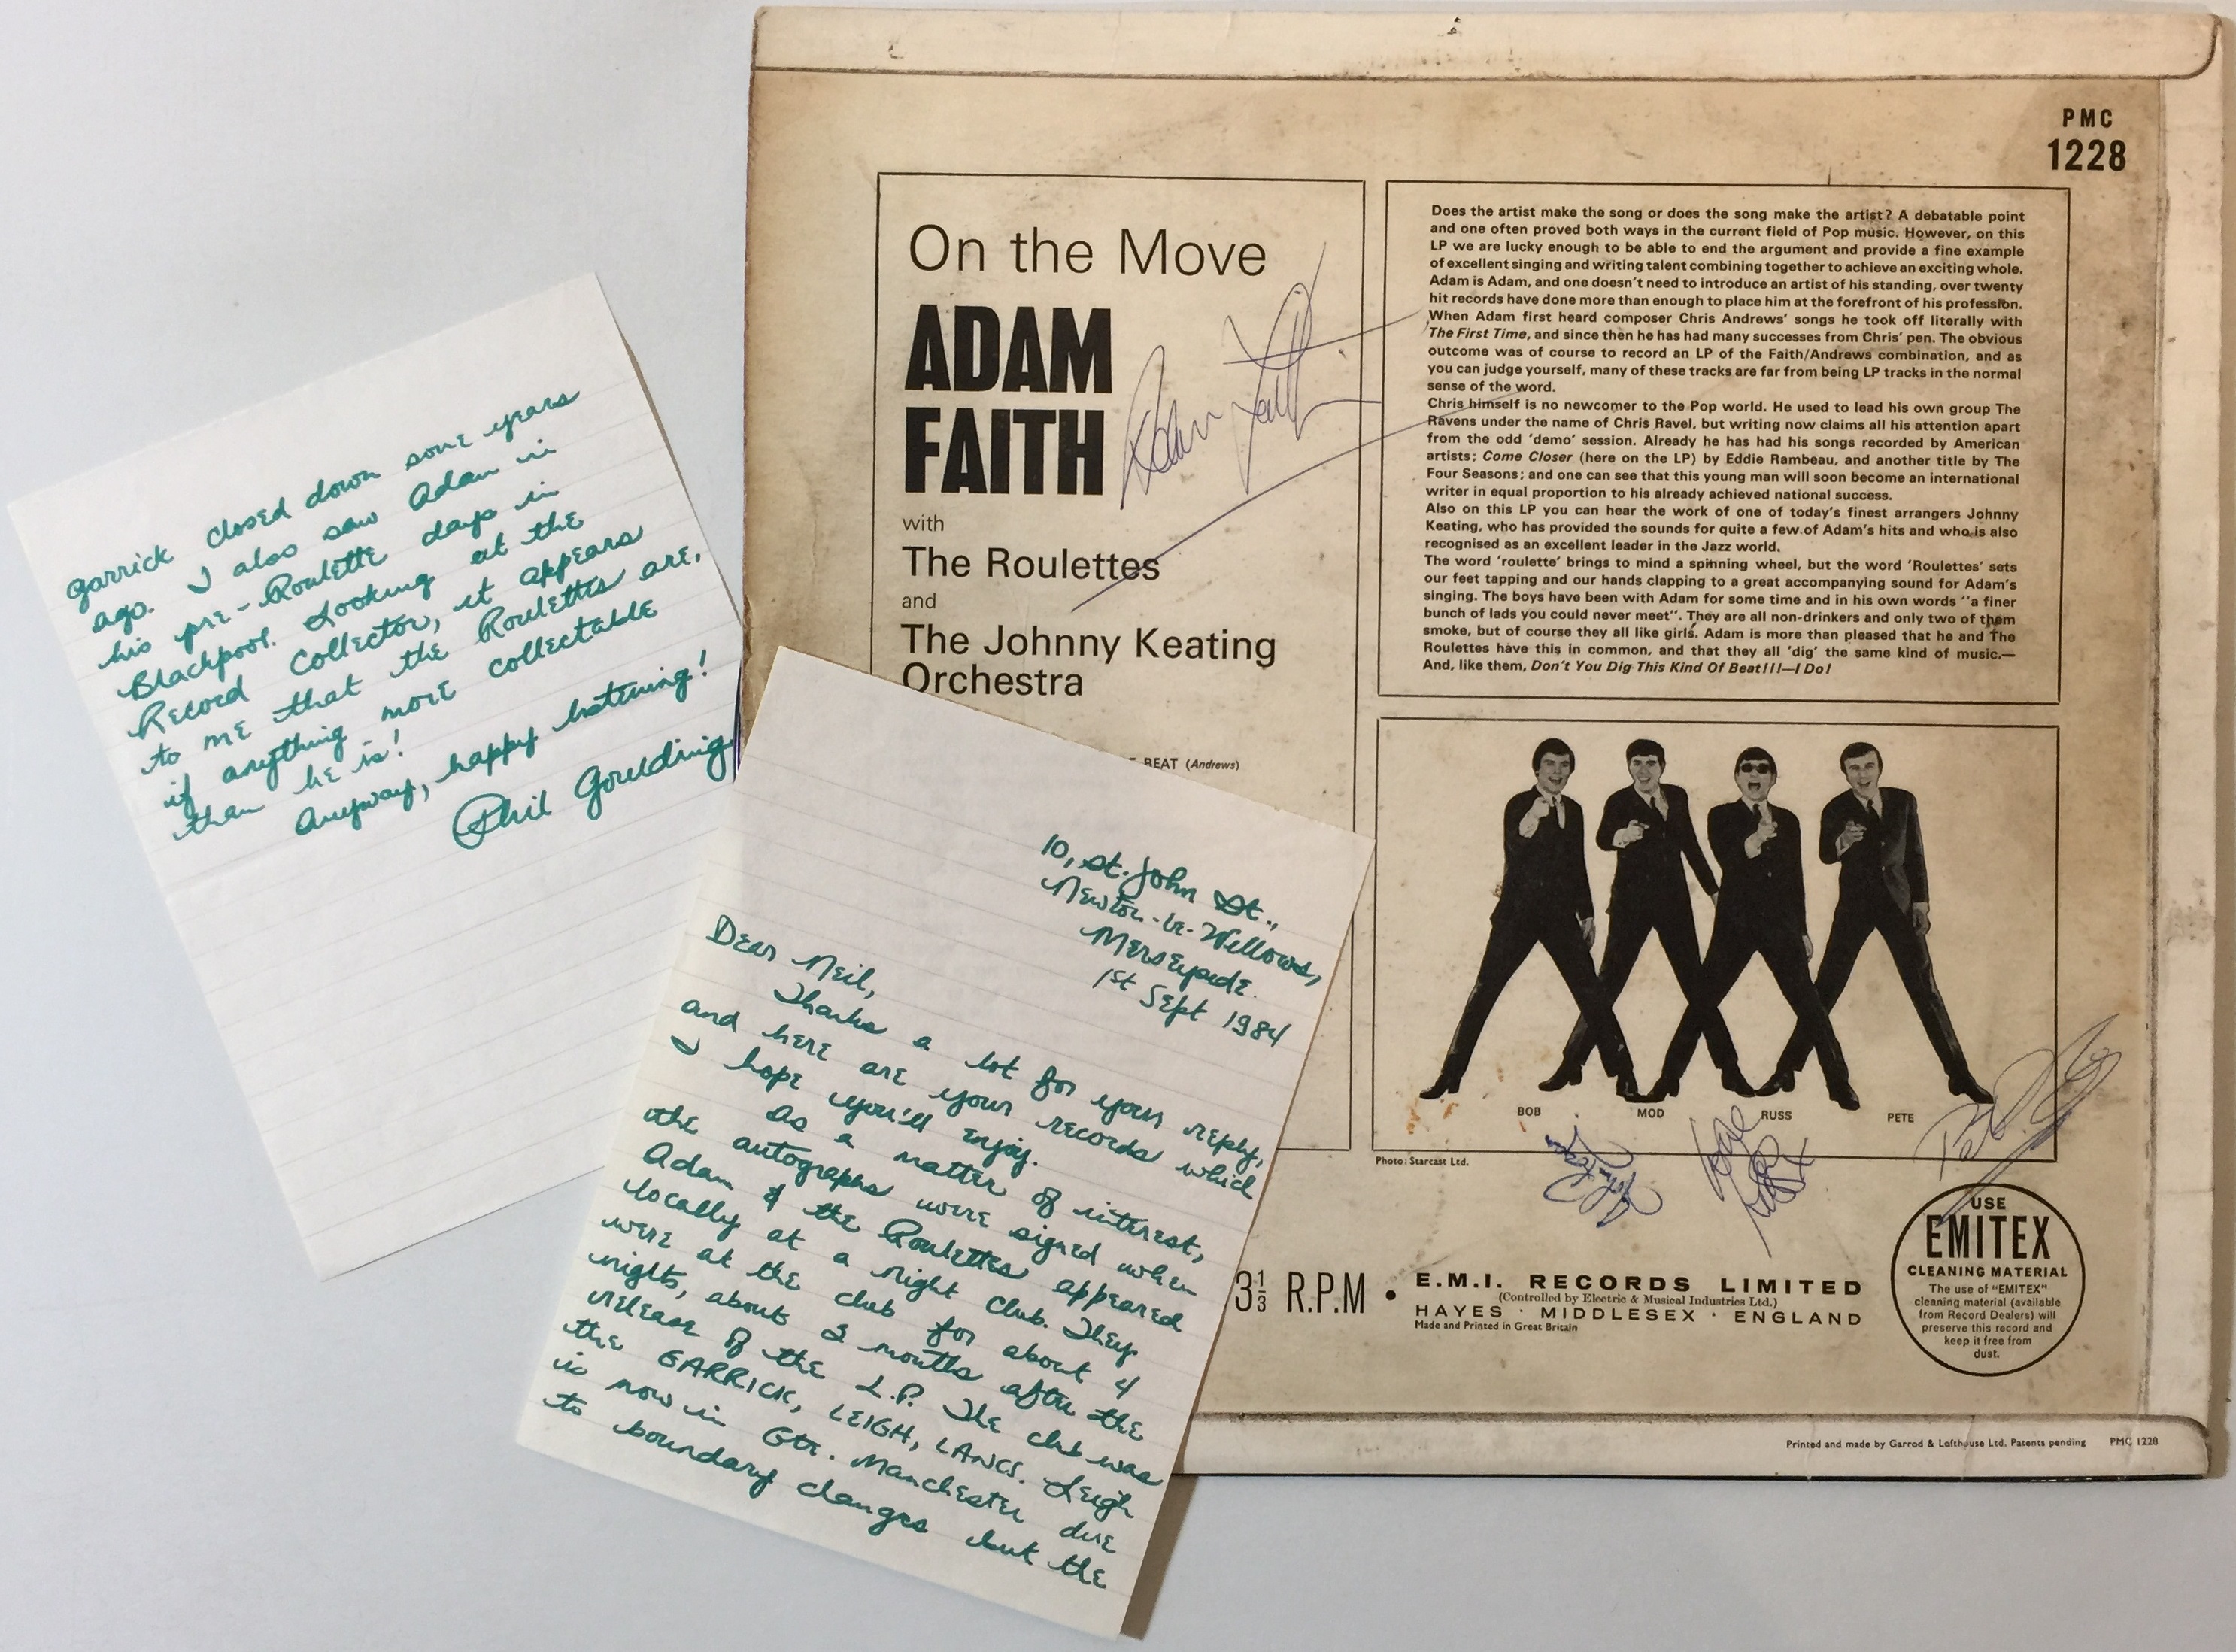 PMC
1228
On the Move
ADAM
FAITH
with
The Roulettes
and
The Johnny Keating
Orchestra
BEAT (Andrews)
Adam Faith
Does the artist make the song or does the song make the artist? A debatable point
and one often proved both ways in the current field of Pop music. However, on this
LP we are lucky enough to be able to end the argument and provide a fine example
of excellent singing and writing talent combining together to achieve an exciting whole.
Adam is Adam, and one doesn't need to introduce an artist of his standing, over twenty
hit records have done more than enough to place him at the forefront of his profession.
When Adam first heard composer Chris Andrews' songs he took off literally with
The First Time, and since then he has had many successes from Chris' pen. The obvious
outcome was of course to record an LP of the Faith/Andrews combination, and as
you can judge yourself, many of these tracks are far from being LP tracks in the normal
sense of the word.
Chris himself is no newcomer to the Pop world. He used to lead his own group The
Ravens under the name of Chris Ravel, but writing now claims all his attention apart
from the odd 'demo' session. Already he has had his songs recorded by American
artists; Come Closer (here on the LP) by Eddie Rambeau, and another title by The
Four Seasons; and one can see that this young man will soon become an international
writer in equal proportion to his already achieved national success.
Also on this LP you can hear the work of one of today's finest arrangers Johnny
Keating, who has provided the sounds for quite a few of Adam's hits and who is also
recognised as an excellent leader in the Jazz world.
The word 'roulette' brings to mind a spinning wheel, but the word 'Roulettes' sets
our feet tapping and our hands clapping to a great accompanying sound for Adam's
singing. The boys have been with Adam for some time and in his own words "a finer
bunch of lads you could never meet". They are all non-drinkers and only two of them
smoke, but of course they all like girls. Adam is more than pleased that he and The
Roulettes have this in common, and that they all 'dig' the same kind of music.—
And, like them, Don't You Dig This Kind Of Beat!!!—I Do!
BOB MOD RUSS PETE
Photo: Starcast Ltd.
3⅓ R.P.M • E.M.I. RECORDS LIMITED
(Controlled by Electric & Musical Industries Ltd.)
HAYES · MIDDLESEX · ENGLAND
Made and Printed in Great Britain
USE
EMITEX
CLEANING MATERIAL
The use of "EMITEX"
cleaning material (available
from Record Dealers) will
preserve this record and
keep it free from
dust.
Printed and made by Garrod & Lofthouse Ltd. Patents pending PMC 1228
10, St. John St.,
Newton-le-Willows,
Merseyside.
1st Sept 1984
Dear Neil,
Thanks a lot for your reply,
and here are your records which
I hope you'll enjoy.
As a matter of interest,
the autographs were signed when
Adam & the Roulettes appeared
locally at a night club. They
were at the club for about 4
nights, about 2 months after the
release of the L.P. The club was
the GARRICK, LEIGH, LANCS. Leigh
is now in Gtr. Manchester due
to boundary changes but the
Garrick closed down some years
ago. I also saw Adam in
his pre-Roulette days in
Blackpool. Looking at the
Record Collector, it appears
to me that the Roulettes are,
if anything more collectable
than he is!
Anyway, happy listening!
Phil Goulding